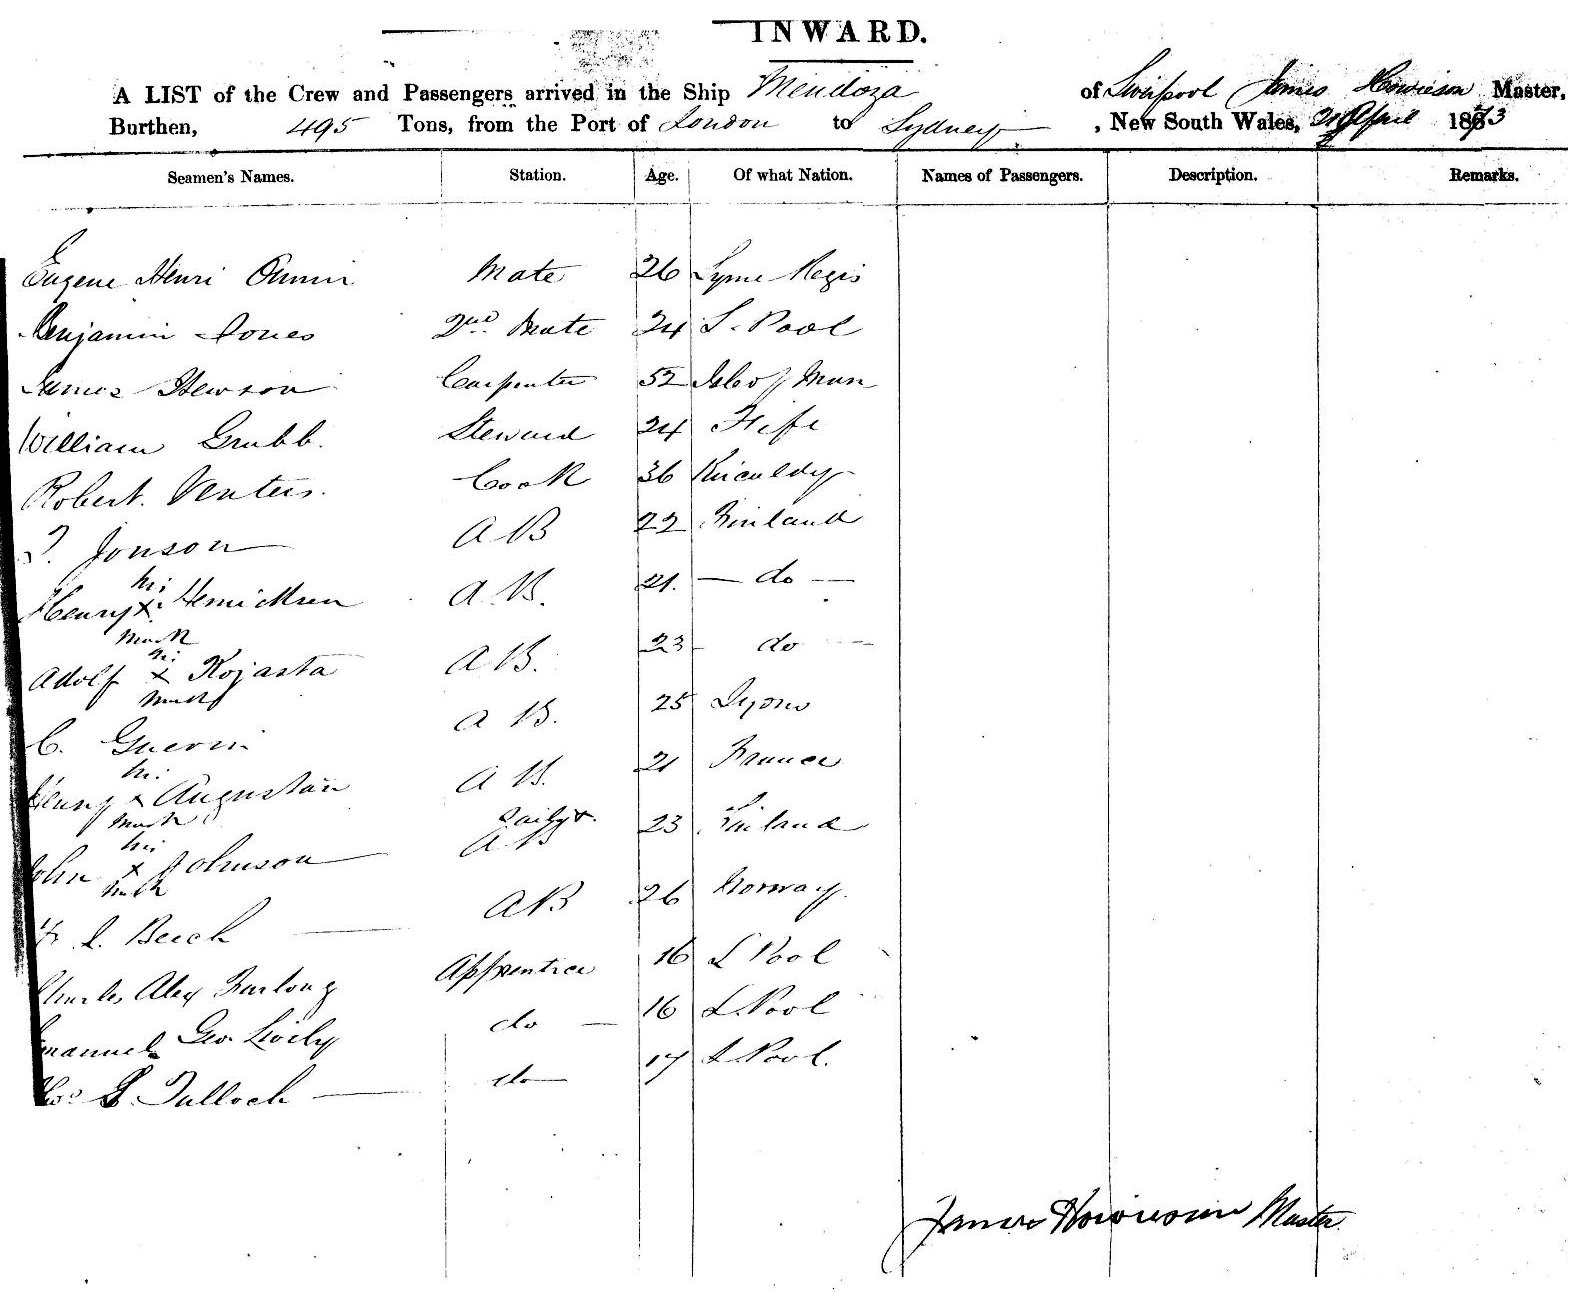 INWARD.
A LIST of the Crew and Passengers arrived in the Ship Mendoza of Liverpool James Howieson Master,
Burthen, 495 Tons, from the Port of London to Sydney, New South Wales, April 1873
Seamen's Names. Station. Age. Of what Nation. Names of Passengers. Description. Remarks.
Eugene Henri Mate 26 Lyme Regis
Benjamin Jones 2nd Mate 24 L. Pool
James Hewson Carpenter 52 Isle of Man
William Grubb. Steward 24 Fife
Robert Venters. Cook 36 Kircaldy
Jonson A B 22 Finland
his
Henry x A B. 21. — do —
mark
his
Adolf x Kojasta A B. 23 — do —
mark
C. Guerin A B. 25 Lyons
his
Henry x Augustan A B. 21 France
mark
his
John x Johnson A B 23 Finland
mark
Beich A B 26 Norway.
Charles Alex Furlong Apprentice 16 L Pool
Emanuel Geo. Lively do — 16 L Pool
Tulloch — do — 17 L Pool.
James Howieson Master